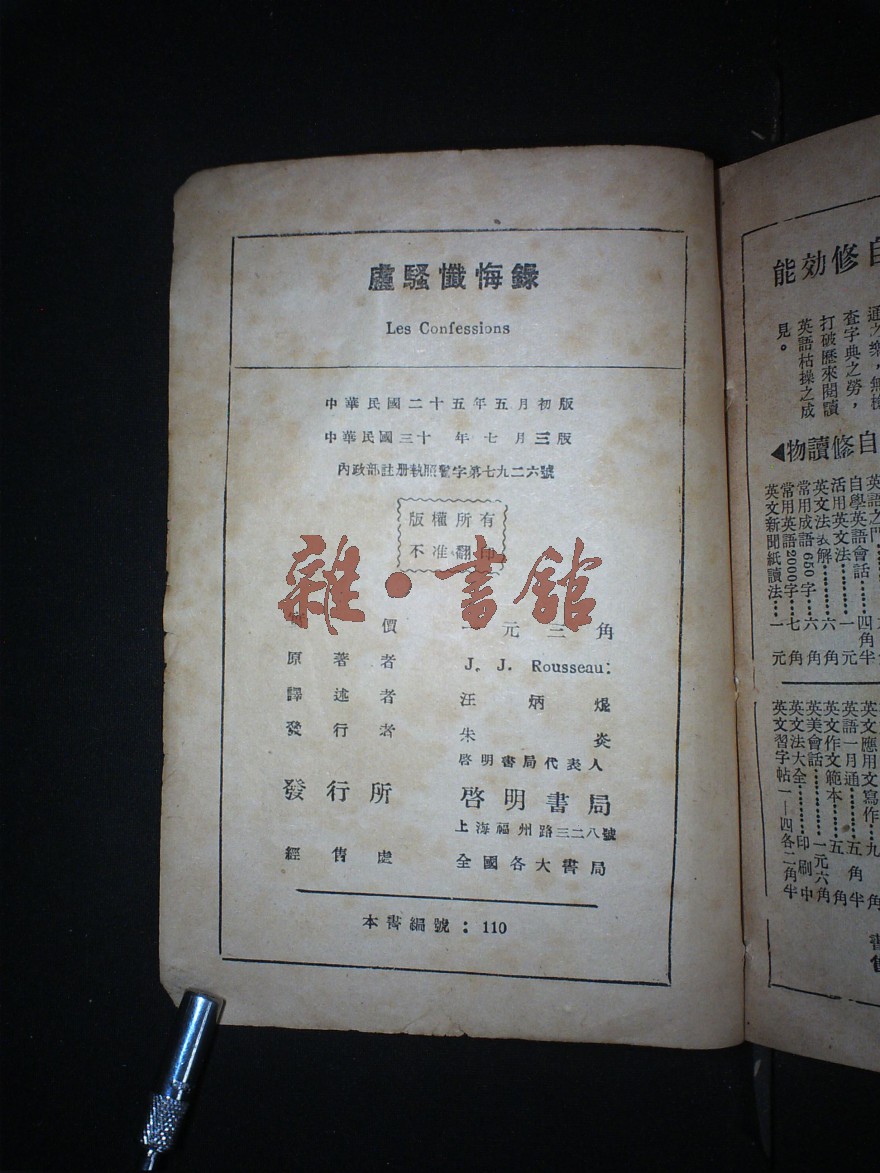 盧騷懺悔錄
Les Confessions
中華民國二十五年五月初版
中華民國三十 年七月三版
內政部註册執照警字第七九二六號
版權所有
不准翻印
雜·書館
價 一元三角
原著者 J. J. Rousseau:
譯述者 汪炳焜
發行者 朱炎
啓明書局代表人
發行所 啓明書局
上海福州路三二八號
經售處 全國各大書局
本書編號：110
自修効能
查字典之勞，
打破歷來閱讀
英語枯操之成
見。
自修讀物
自學英語會話……四角半
活用英文法……一元
英文法 解……六角
常用成語650字……六角
常用英語2000字……七角
英文新聞紙讀法……一元
英文應用文寫作……九角
英語一月通……五角半
英文作文範本……五角
英美會話……一元六角
英文法大全……印刷中
英文習字帖一—四各二角半